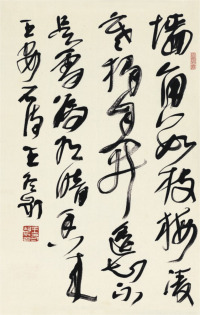 墙角数枝梅凌
寒独自开遥知不
是雪为有暗香来
王安石诗王冬龄